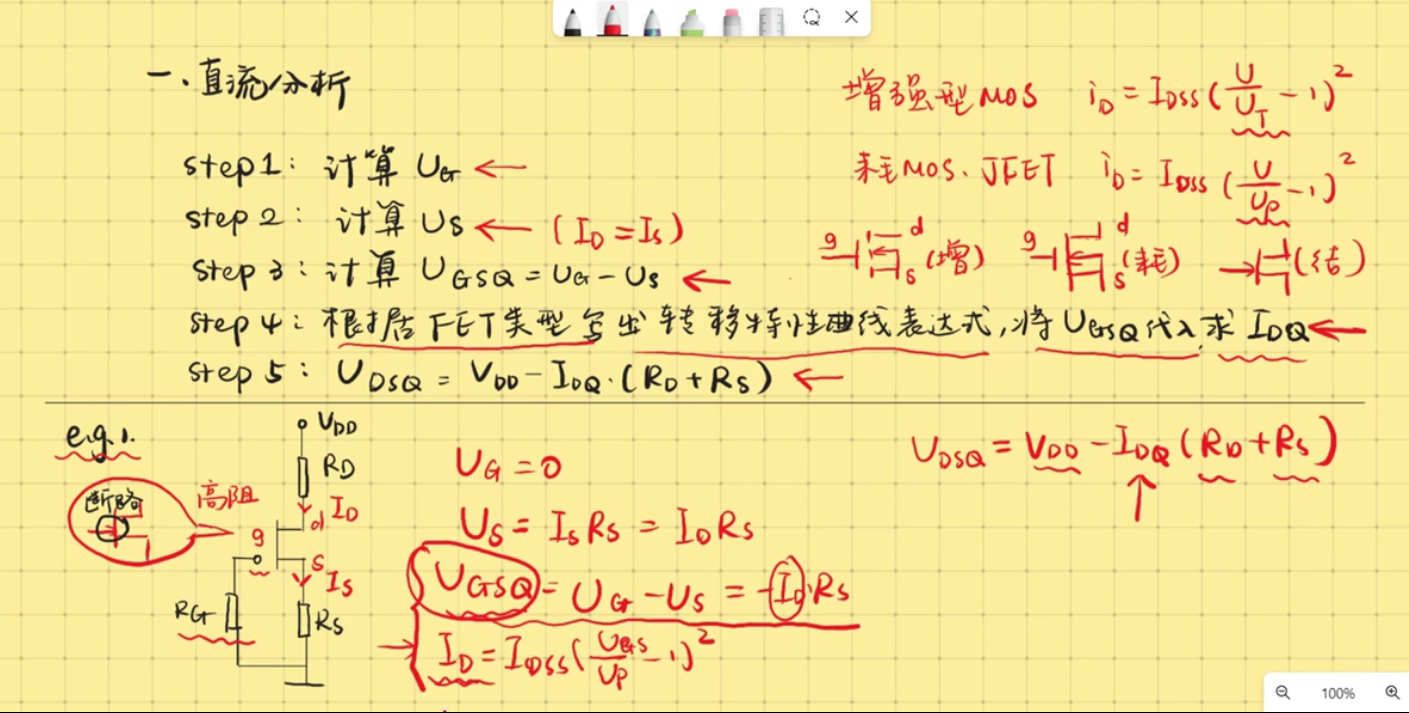 一.直流分析
step1: 计算 UG ←
step 2: 计算 US ← (ID = IS)
step 3: 计算 UGSQ = UG - US ←
step 4: 根据FET类型写出转移特性曲线表达式,将UGSQ代入求 IDQ ←
step 5: UDSQ = VDD - IDQ·(RD+RS) ←
增强型MOS iD = IDSS(U/UT - 1)²
耗MOS、JFET iD = IDSS(U/UP - 1)²
g d s (增) g d s (耗) (结)
e.g.1.
断路
高阻
VDD
RD
ID
d
g
s
IS
RG
RS
UG = 0
US = ISRS = IDRS
UGSQ = UG - US = -ID·RS
ID = IDSS(UGS/UP - 1)²
UDSQ = VDD - IDQ(RD+RS)
100%